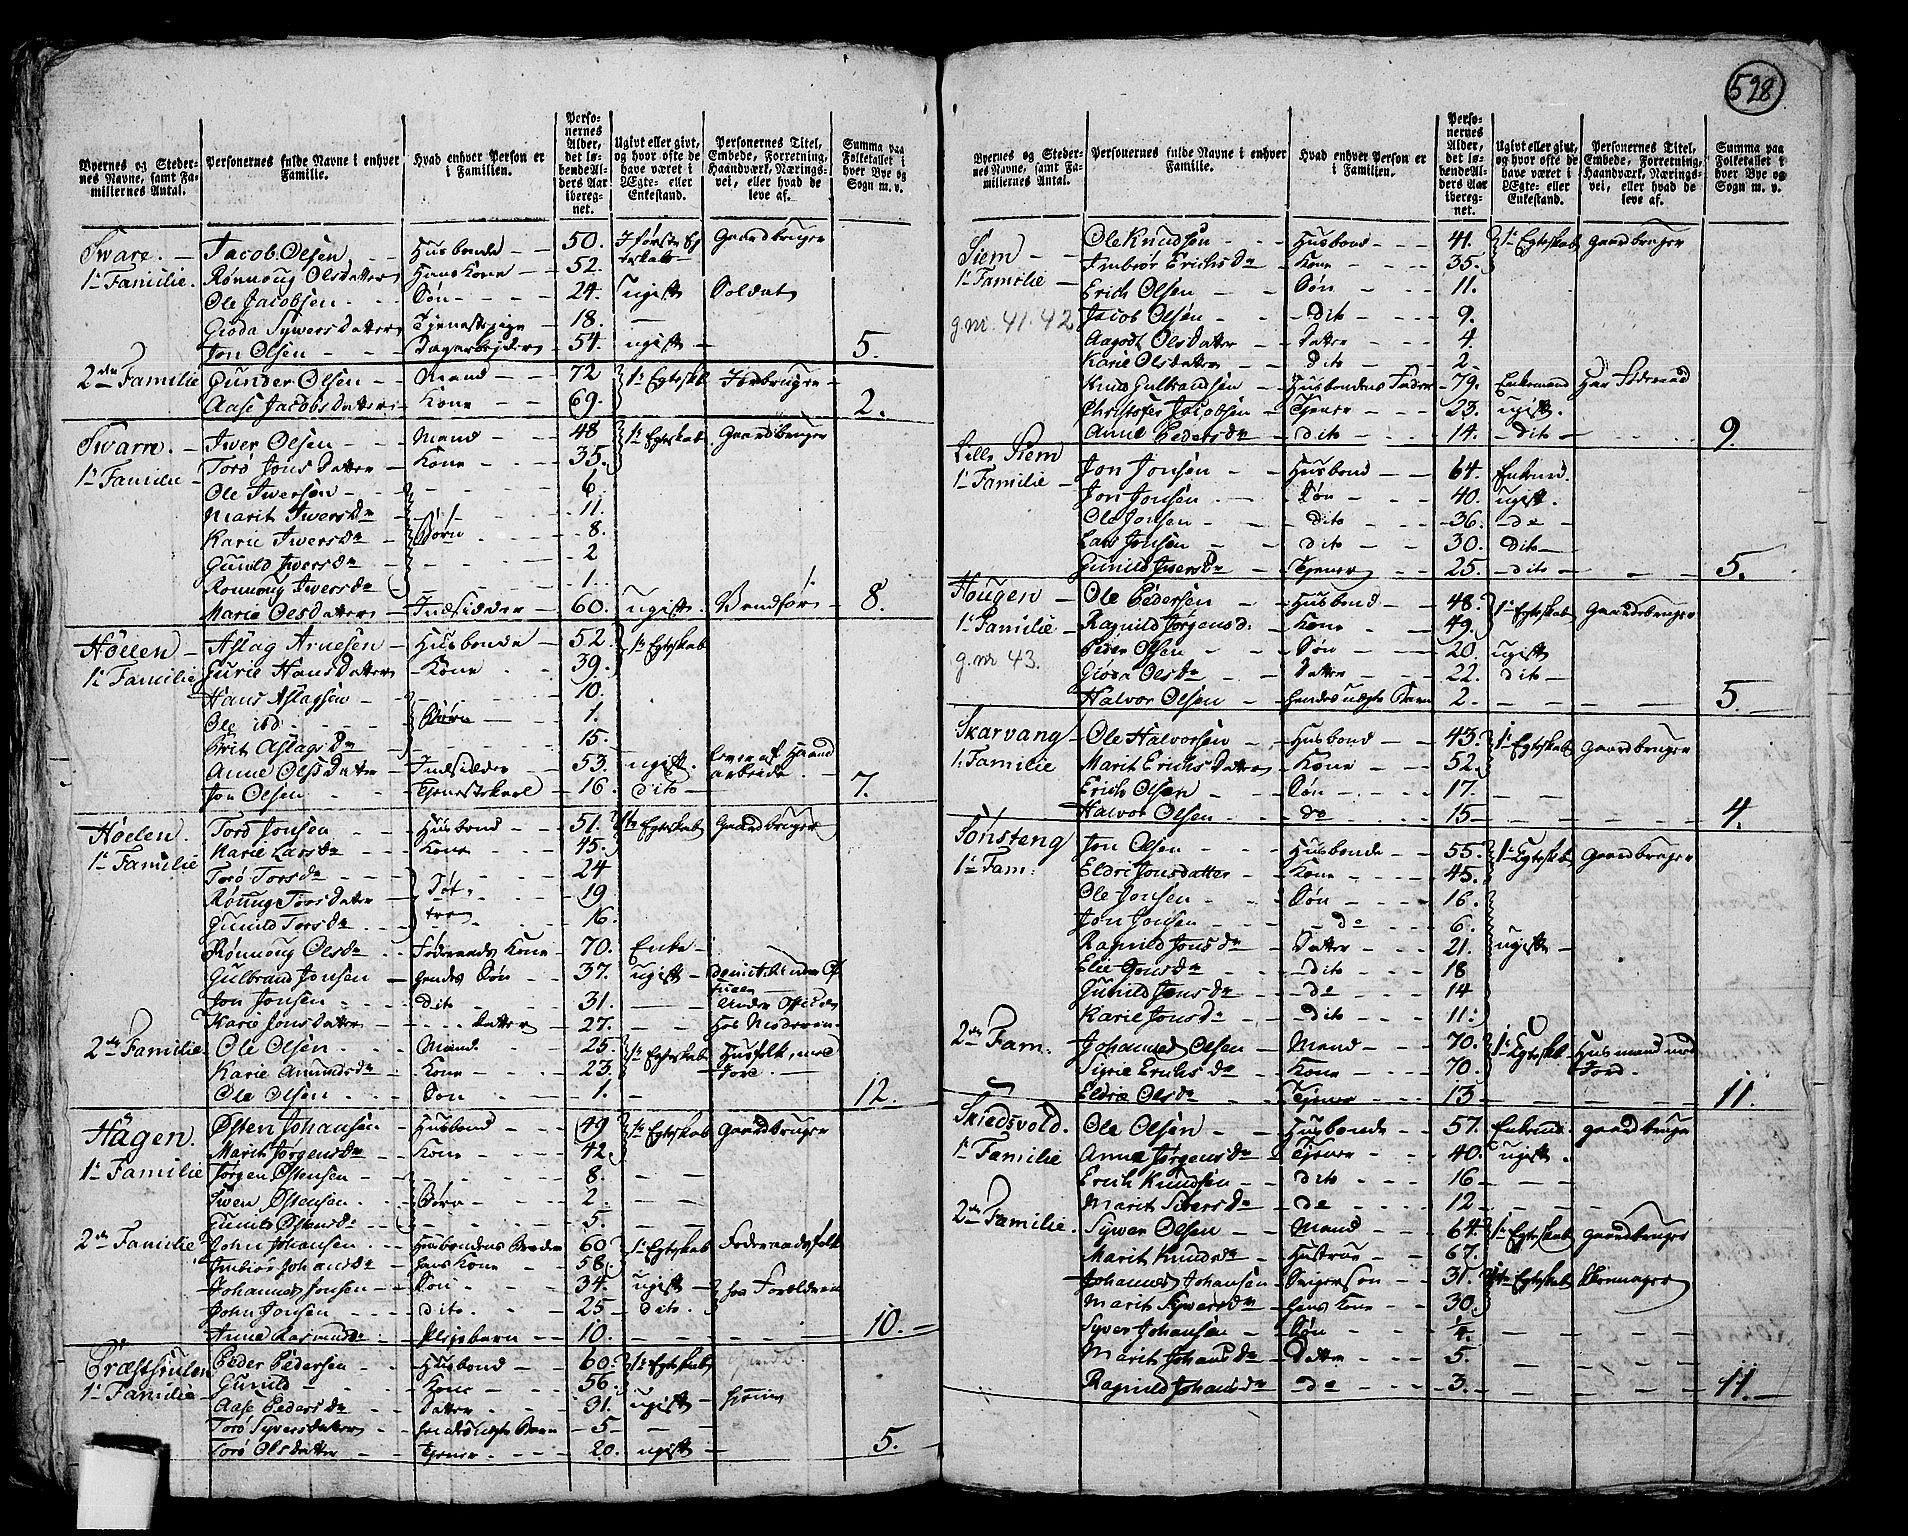 528
Byernes og Steder-
nes Navne, samt Fa-
miliernes Antal.
Personernes fulde Navne i enhver
Familie.
Hvad enhver Person er
i Familien.
Perso-
nernes
Alder,
det lø-
bende Al-
ders Aar
iberegnet.
Ugivt eller givt,
og hvor ofte de
have været i
Ægte- eller
Enkestand.
Personernes Titel,
Embede, Forretning,
Haandværk, Nærings-
vei, eller hvad de
leve af.
Summa paa
Folketallet i
hver Bye og
Sogn m. v.
Sware. Jacob Olsen Husbonde 50. Gaardbruger
1te Familie. Rønnoug Olsdatter Hans Kone 52.
Ole Jacobsen Søn 24. ugift Soldat
Gioda Sywersdatter Tjenestepige 18.
Jon Olsen Dagarbejder 54. ugift 5.
2den Familie Gunder Olsen Mand 72 1te Egteskb. Jordbruger
Aase Jacobsdatter Kone 69. 2.
Swarre. Iwer Olsen Mand 48 1te Egteskab. Gaardbruger
1te Familie Torø Jonsdatter Kone 35.
Ole Iwersøn 6.
Marit Iwersdr 11.
Karie Iwersdr Børn 8.
Gunild Iwersdr 2
Ronnoug Iwersdr 1.
Marie Olsdatter Indsidder 60. ugift. Vandfør 8.
Høelen Aslag Arnesen Husbonde 52. 1te Egteskab
1te Familie Gurie Hansdatter Kone 39.
Hans Aslagsen 10.
Ole ibd Børn 1.
Brit Aslagsdr 15.
Anne Olsdatter Indsidder 53. ugift. lever af Haand
arbeide.
Jon Olsen Tjenestekarl 16. dito 7.
Høelen. Tord Jonsen Husbond 51. 1te Egteskab Gaardbruger
1te Familie Marie Larsdr Kone 45.
Torø Torsdr Døt- 24
Rønnug Torsdatter tre 19
Gunild Torsdr 16.
Rønnoug Olsdr Føderaads Kone 70. Enke
Gulbrand Jonsen hendes Søn 37. ugift
Jon Jonsen dito 31.
Karie Jonsdatter Datter 27. Hos Moderen
2den Familie. Ole Olsen Mand 25 1te Egteskab Husfolk med
Karie Amundsdr Kone 23. Jord.
Ole Olsen Søn 1. 12.
Hagen. Østen Johansen Husbond 49 1te Egteskab Gaardbruger
1te Familie Marit Jørgensdr Kone 42.
Jørgen Østensen 8.
Swen Østensen Børn 2
Gunild Østensdr 5.
2den Familie John Johansen Husbondens Broder 60 1te Egteskab Føderaadsfolk
Imbiør Johansdr hans Kone 58.
Johannes Jonsen Søn 34. ugift hos Forældrene
John Jonsen dito 25 dito.
Anne Rasmusdr Plejebarn 10. 10.
Præsthulen Peder Pedersen Husbond 60. 1te Egteskab
1te Familie Gunild Kone 56.
Aase Pedersdr Datter 31. ugift
Torø Syversdatter hendes uægte Barn 5
Torø Olsdatter Tjener 20. ugift 5.
Byernes og Steder-
nes Navne, samt Fa-
miliernes Antal.
Personernes fulde Navne i enhver
Familie.
Hvad enhver Person er
i Familien.
Perso-
nernes
Alder,
det lø-
bende Al-
ders Aar
iberegnet.
Ugivt eller givt,
og hvor ofte de
have været i
Ægte- eller
Enkestand.
Personernes Titel,
Embede, Forretning,
Haandværk, Nærings-
vei, eller hvad de
leve af.
Summa paa
Folketallet i
hver Bye og
Sogn m. v.
Siem Ole Knudsen Husbond 41. 1te Egteskab Gaardbruger
1te Familie Imbiør Erichsdr Kone 35.
Erich Olsen Søn 11.
g.nr. 41.42 Jacob Olsen dito 9.
Aagodt Olsdatter Datter 4.
Karie Olsdatter dito 2.
Knud Gulbrandsen Husbondens Fader 79. Enkemand Har Føderaad
Christofer Jacobsen Tjener 23. ugift.
Anne Pedersdr dito 14. dito 9.
Lille Siem Jon Jonsen Husbond 64. Enkemd.
1te Familie Jon Jonsen Søn 40. ugift.
Ole Jonsen dito 36. do
Lars Jonsen dito 30. dito
Gunild Iwersdr Tjener 25. dito 5.
Hougen Ole Pedersen Husbond 48. 1te Egteskab Gaardbruger
1te Familie Ragnild Jørgensd. Kone 49.
g.nr 43. Peder Olsen Søn 20. ugift
Gioda Olsdr Datter 22. dito
Halvor Olsen hendes uægte Barn 2. 5.
Skarvang Ole Halvorsen Husbond 43. 1te Egteskab Gaardbruger
1. Familie Marit Erichsdatter Kone 52.
Erich Olsen Søn 17.
Halvor Olsen do 15 4.
Sønsteng Jon Olsen Husbonde 55. 1te Egteskab Gaardbruger
1te Fam: Eldri Jonsdatter Kone 45.
Ole Jonsen Søn 16.
Jon Jonsen do 6.
Ragnild Jonsdr Datter 21. ugift
Elie Jonsdr dito 18
Gunild Jonsdr do 14
Karie Jonsdr dito 11.
2den Fam. Johannes Olsen Mand 70. 1te Egteskb Husmand med
Sigrie Erichsdr Kone 70. Jord.
Eldrie Olsdr Tjener 13 11.
Skiedsvold. Ole Olsen Husbonde 57. Enkemd. gaardbruger
1te Familie Anne Jørgensdr Tjener 40. ugift.
Erich Knudsen dito 16
Marit Siversdr do 12
2den Familie. Sywer Olsen Mand 64. 1te Egteskab Gaardbruger
Marit Knudsdr Hustrue 67.
Johannes Johansen Svigersøn 31. 1te Egteskab
Marit Sywersdr hans Kone 30.
Syver Johansen Søn ¼.
Marit Johansdr Datter 5.
Ragnild Johansdr do 3. 11.